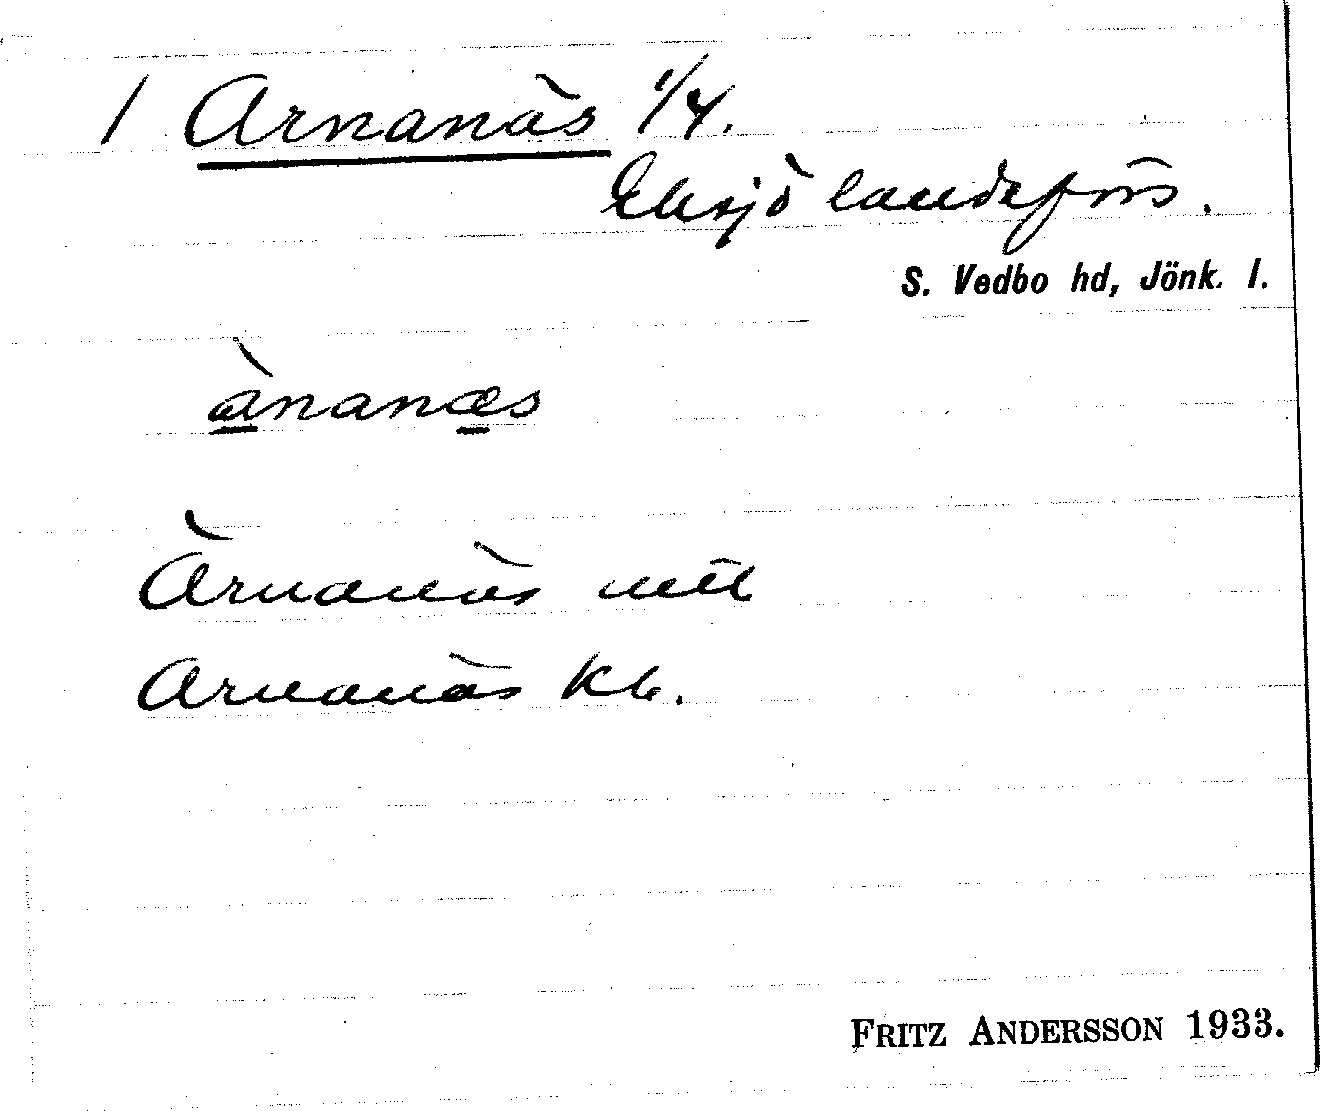 1 Arnanäs 1/4.
Eksjö landsförs.
S. Vedbo hd, Jönk. l.
ànanæs
Ärnanäs mtl
Arnanäs Kb.
FRITZ ANDERSSON 1933.